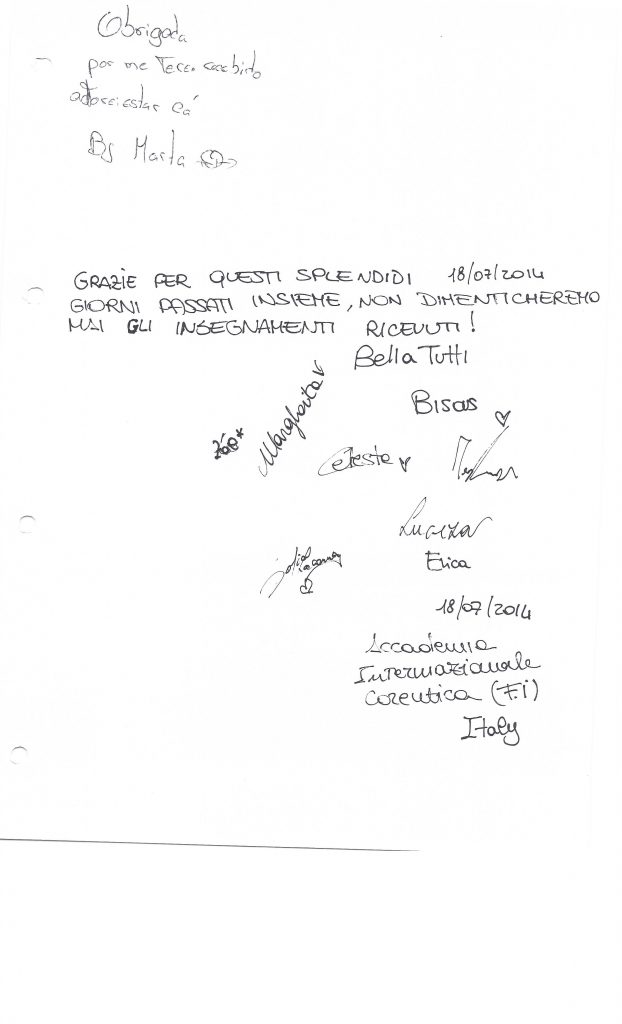 Obrigada
por me recebido
adorei estar cá
By Marta
GRAZIE PER QUESTI SPLENDIDI 18/07/2014
GIORNI PASSATI INSIEME, NON DIMENTICHEREMO
MAI GLI INSEGNAMENTI RICEVUTI!
Bella Tutti
Bisous
Margherita
Celeste
Erica
18/07/2014
Accademia
Internazionale
Coreutica (F.i)
Italy